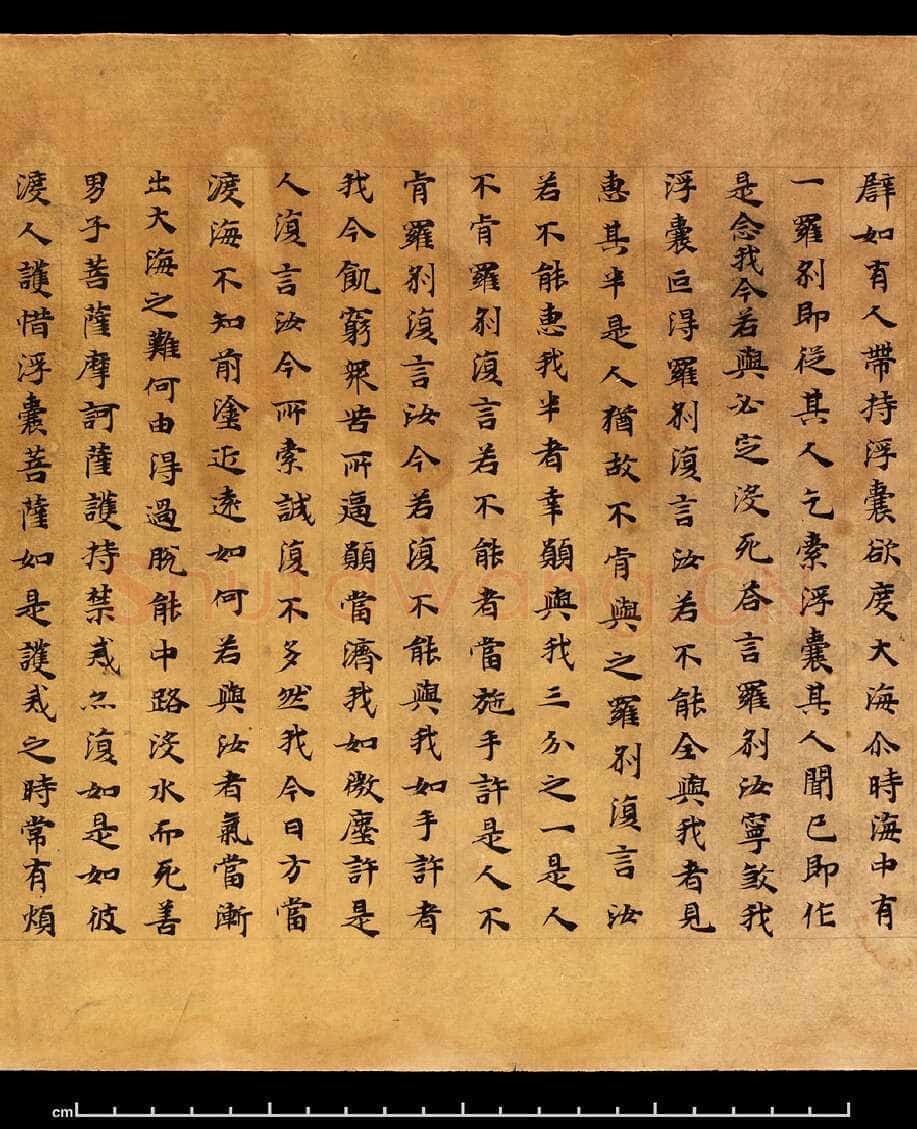 譬如有人帶持浮囊欲度大海尒時海中有
一羅剎即從其人乞索浮囊其人聞已即作
是念我今若與必定沒死荅言羅剎汝寧煞我
浮囊叵得羅剎復言汝若不能全與我者見
惠其半是人猶故不肯與之羅剎復言汝
若不能惠我半者幸願與我三分之一是人
不肯羅剎復言若不能者當施手許是人不
肯羅剎復言汝今若復不能與我如手許者
我今飢窮衆苦所逼願當濟我如微塵許是
人復言汝今所索誠復不多然我今日方當
渡海不知前塗近遠如何若與汝者氣當漸
出大海之難何由得過脫能中路沒水而死善
男子菩薩摩訶薩護持禁戒亦復如是如彼
渡人護惜浮囊菩薩如是護戒之時常有煩
Shufawang.CN
cm